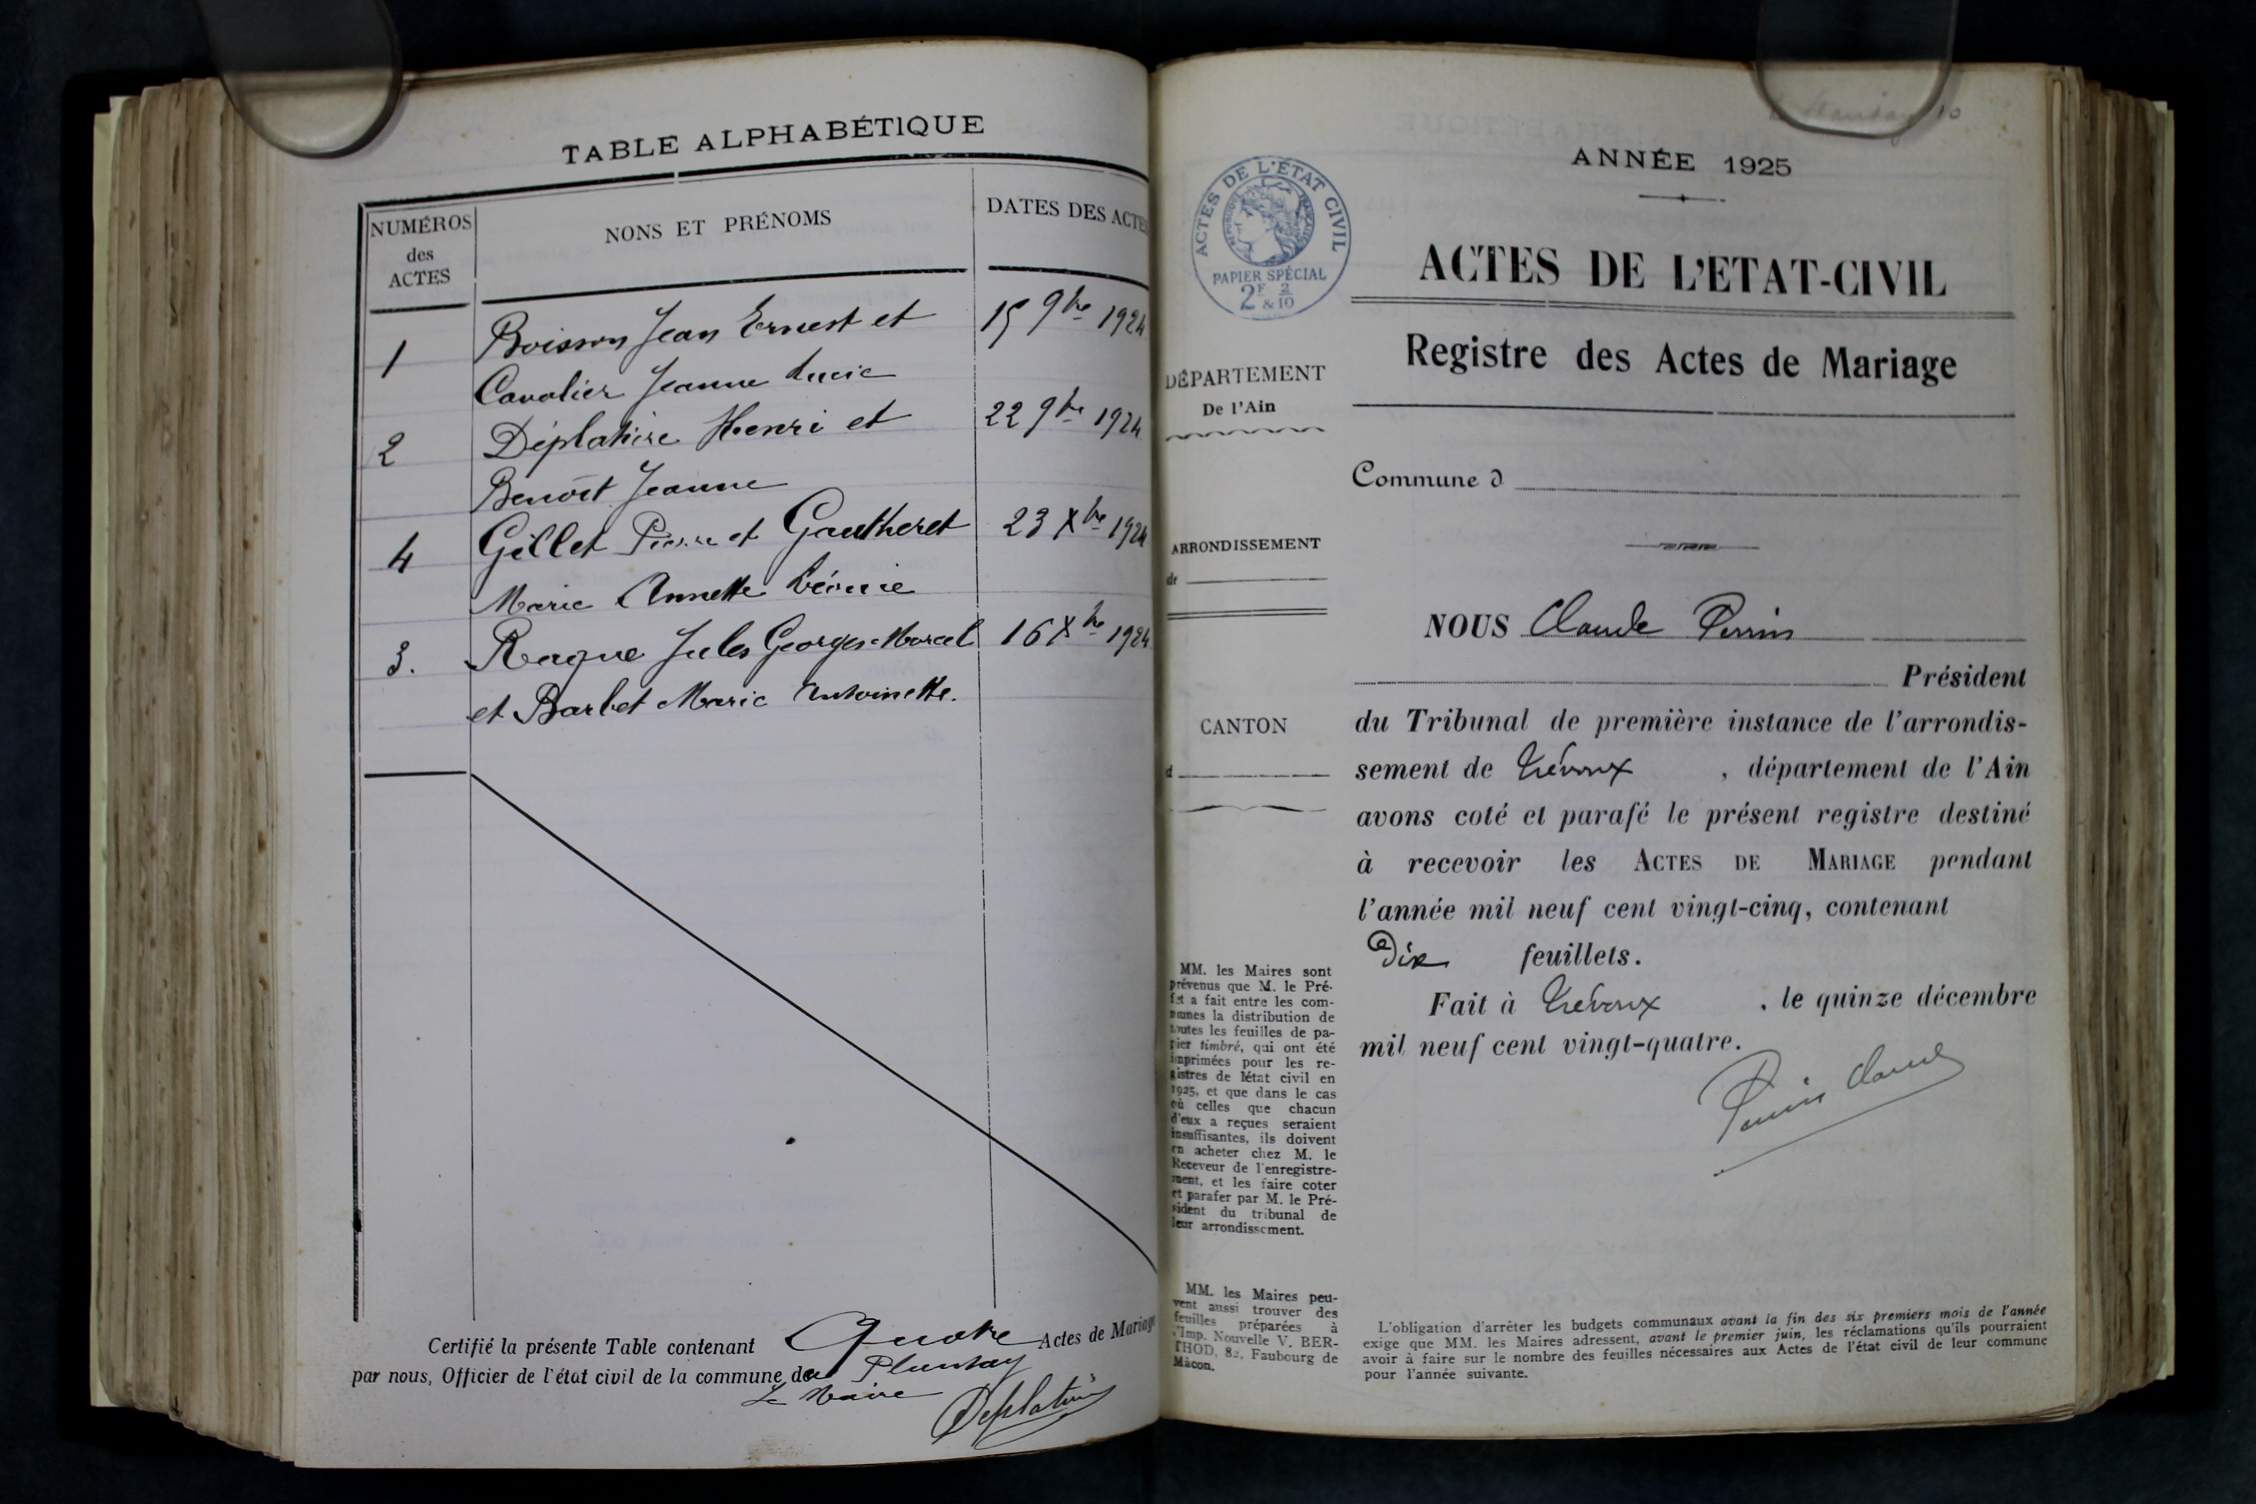 TABLE ALPHABÉTIQUE
NUMÉROS
des
ACTES
NONS ET PRÉNOMS
DATES DES ACTES
1
Boisson Jean Ernest et
15 9bre 1924
Cavalier Jeanne Lucie
2
Déplatière Henri et
22 9bre 1924
Benoît Jeanne
4
Gillet Pierre et Gautheret
23 Xbre 1924
Marie Annette Léonie
3.
Rague Jules Georges Marcel
16 Xbre 1924
et Barbet Marie Antoinette.
Certifié la présente Table contenant Quatre Actes de Mariage
par nous, Officier de l'état civil de la commune de Plantay
Le Maire
10
ANNÉE 1925
ACTES DE L'ÉTAT CIVIL
RÉPUBLIQUE FRANÇAISE
PAPIER SPÉCIAL
2F 2
& 10
ACTES DE L'ETAT-CIVIL
Registre des Actes de Mariage
DÉPARTEMENT
De l'Ain
Commune d
ARRONDISSEMENT
de
CANTON
d
NOUS Claude Perrin
Président
du Tribunal de première instance de l'arrondis-
sement de Trévoux , département de l'Ain
avons coté et parafé le présent registre destiné
à recevoir les ACTES DE MARIAGE pendant
l'année mil neuf cent vingt-cinq, contenant
Dix feuillets.
Fait à Trévoux , le quinze décembre
mil neuf cent vingt-quatre.
Perrin Claude
MM. les Maires sont
prévenus que M. le Pré-
fet a fait entre les com-
munes la distribution de
toutes les feuilles de pa-
pier timbré, qui ont été
imprimées pour les re-
gistres de l'état civil en
1925, et que dans le cas
où celles que chacun
d'eux a reçues seraient
insuffisantes, ils doivent
en acheter chez M. le
Receveur de l'enregistre-
ment, et les faire coter
et parafer par M. le Pré-
sident du tribunal de
leur arrondissement.
MM. les Maires peu-
vent aussi trouver des
feuilles préparées à
l'Imp. Nouvelle V. BER-
THOD, 82, Faubourg de
Mâcon.
L'obligation d'arrêter les budgets communaux avant la fin des six premiers mois de l'année
exige que MM. les Maires adressent, avant le premier juin, les réclamations qu'ils pourraient
avoir à faire sur le nombre des feuilles nécessaires aux Actes de l'état civil de leur commune
pour l'année suivante.